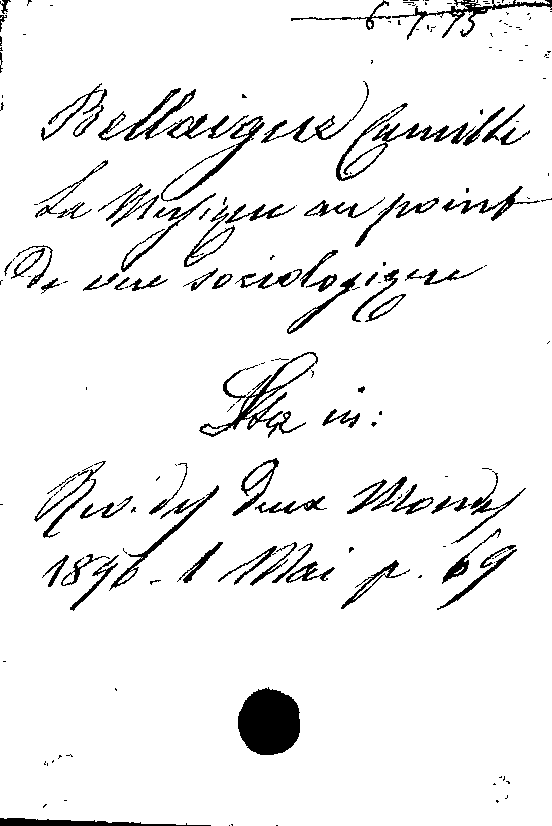 6.7.75
Bellaigue Camille
La Musique au point
de vue sociologique
in:
Rev. des Deux Mondes
1896 - 1 Mai p. 69